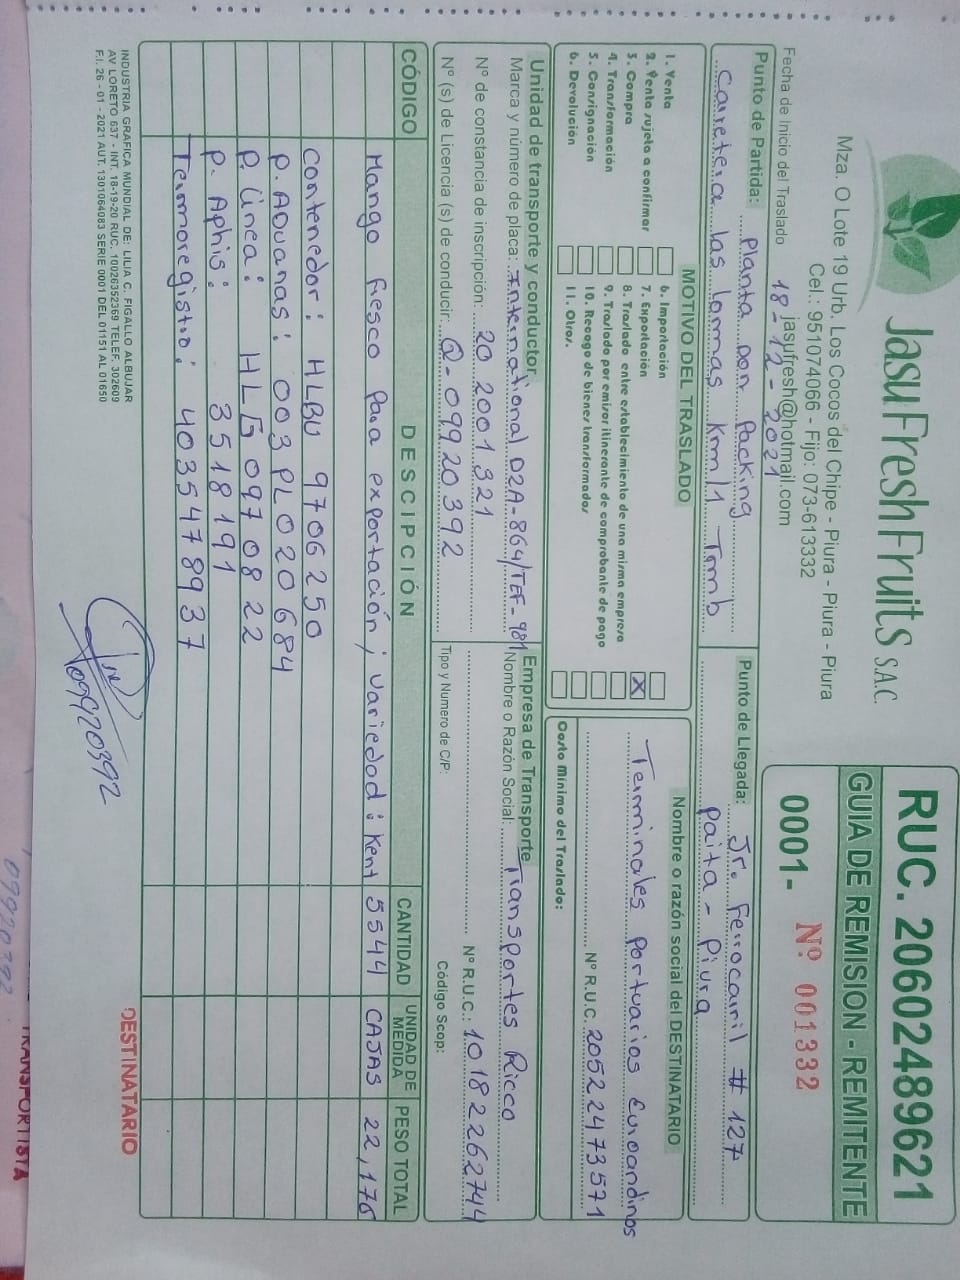 JasuFreshFruits S.A.C.
Mza. O Lote 19 Urb. Los Cocos del Chipe - Piura - Piura - Piura
Cel.: 951074066 - Fijo: 073-613332
jasufresh@hotmail.com
RUC. 20602489621
GUIA DE REMISION - REMITENTE
0001- Nº 001332
Fecha de Inicio del Traslado 18-12-2021
Punto de Partida: Planta Don Packing
Carretera las lomas Km/1 Tamb
Punto de Llegada: Jr. Ferrocarril # 127
Paita - Piura
MOTIVO DEL TRASLADO
1. Venta
2. Venta sujeta a confirmar
3. Compra
4. Transformación
5. Consignación
6. Devolución
6. Importación
7. Exportación X
8. Traslado entre establecimiento de una misma empresa
9. Traslado por emisor itinerante de comprobante de pago
10. Recogo de bienes transformados
11. Otros.
Nombre o razón social del DESTINATARIO
Terminales Portuarios Euroandinos
Nº R.U.C. 20522473571
Costo Mínimo del Traslado:
Unidad de transporte y conductor
Marca y número de placa: International D2A-864/TEF-981
Nº de constancia de inscripción: 20 2001321
Nº (s) de Licencia (s) de conducir: Q-09920392
Empresa de Transporte
Nombre o Razón Social: Transportes Ricco
Nº R.U.C.: 10182262744
Tipo y Numero de C/P: Código Scop:
CÓDIGO DESCIPCIÓN CANTIDAD UNIDAD DE MEDIDA PESO TOTAL
Mango fresco para exportación, variedad: Kent 5544 CAJAS 22,176
Contenedor: HLBU 9706250
P. ADuanas: 003PL020684
P. Linea: HLF 0970822
P. Aphis: 3518191
Termoregistro: 4035478937
09920392
INDUSTRIA GRAFICA MUNDIAL DE: LILIA C. FIGALLO ALBUJAR
AV LORETO 637 - INT. 18-19-20 RUC. 10026352369 TELEF. 302609
F.I. 26 - 01 - 2021 AUT. 1301064083 SERIE 0001 DEL 01151 AL 01650
DESTINATARIO
09920392
TRANSPORTISTA